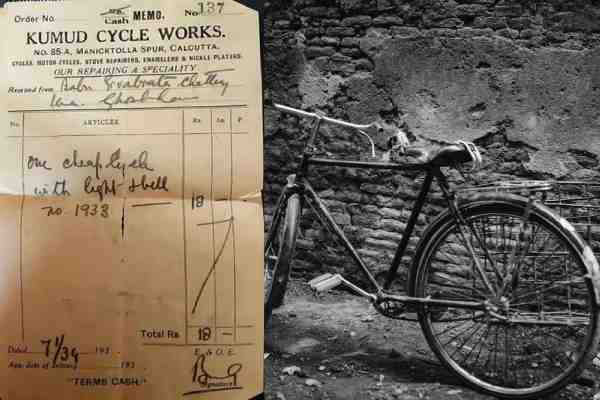 Order No. Cash MEMO. No 137
KUMUD CYCLE WORKS.
No. 85-A, MANICKTOLLA SPUR, CALCUTTA.
CYCLES, MOTOR CYCLES, STOVE REPAIRERS, ENAMELLERS & NICKLE PLATERS.
OUR REPAIRING A SPECIALITY.
Received from Babu
No. ARTICLES Rs. As. P.
one cheap Cycle
with light & bell
no. 1933 18 –
Total Rs 18 –
Dated 7/1/39 193 . E. & O. E.
App. date of delivery 193 .
Signature
"TERMS CASH."